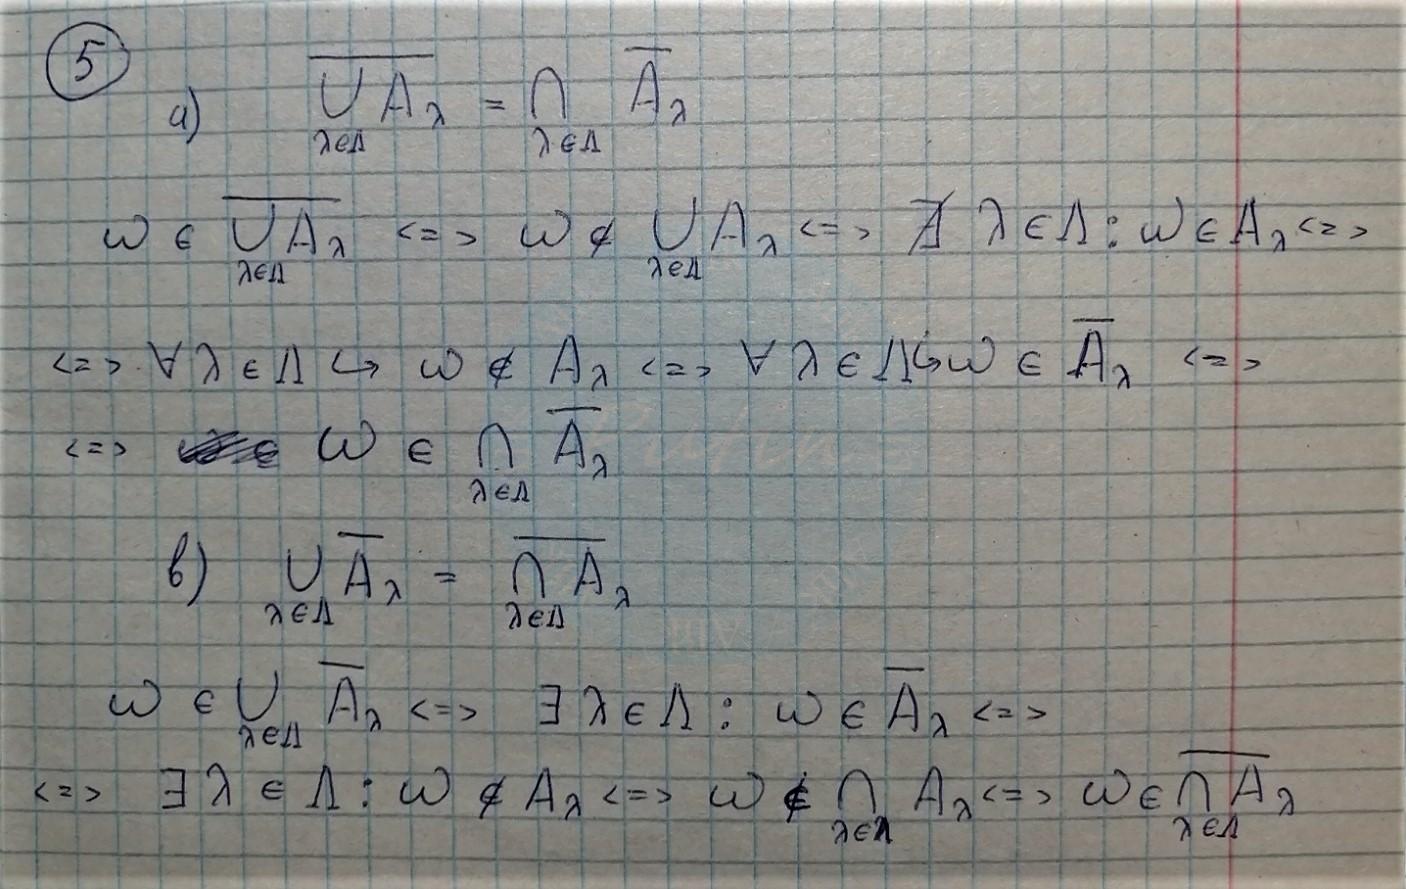 5
а) $\overline{\bigcup_{\lambda \in \Lambda} A_\lambda} = \bigcap_{\lambda \in \Lambda} \overline{A}_\lambda$
$\omega \in \overline{\bigcup_{\lambda \in \Lambda} A_\lambda} <=> \omega \notin \bigcup_{\lambda \in \Lambda} A_\lambda <=> \nexists \lambda \in \Lambda : \omega \in A_\lambda <=>$
$<=> \forall \lambda \in \Lambda \hookrightarrow \omega \notin A_\lambda <=> \forall \lambda \in \Lambda \hookrightarrow \omega \in \overline{A}_\lambda <=>$
$<=> \omega \in \bigcap_{\lambda \in \Lambda} \overline{A}_\lambda$
в) $\bigcup_{\lambda \in \Lambda} \overline{A}_\lambda = \overline{\bigcap_{\lambda \in \Lambda} A_\lambda}$
$\omega \in \bigcup_{\lambda \in \Lambda} \overline{A}_\lambda <=> \exists \lambda \in \Lambda : \omega \in \overline{A}_\lambda <=>$
$<=> \exists \lambda \in \Lambda : \omega \notin A_\lambda <=> \omega \notin \bigcap_{\lambda \in \Lambda} A_\lambda <=> \omega \in \overline{\bigcap_{\lambda \in \Lambda} A_\lambda}$